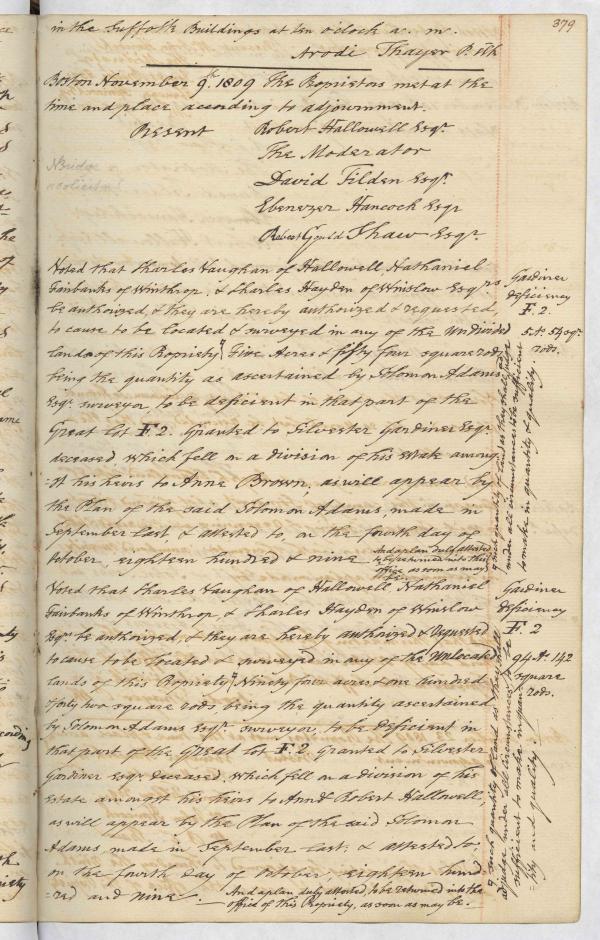 379
in the Suffolk Buildings at ten o'Clock a. m.
Arodi Thayer P. Clk
Boston November 9th 1809 The Proprietors met at the
time and place according to adjournment.
Present Robert Hallowell Esqr.
The Moderator
David Tilden Esqr.
Ebenezer Hancock Esqr
Robert Gould Shaw Esqr.
Voted that Charles Vaughan of Hallowell Nathaniel
Fairbanks of Winthrop, & Charles Hayden of Winslow Esqrs
be authorized, & they are hereby authorized & requested,
to cause to be located & surveyed in any of the Undivided
lands of this Propriety, Five Acres & fifty four square rods
being the quantity as ascertained by Solomon Adams
Esqr. surveyor, to be deficient in that part of the
Great lot F. 2. Granted to Silvester Gardiner Esqr.
deceased which fell on a division of his estate among-
-st his heirs to Anne Brown, as will appear by
the Plan of the said Solomon Adams, made in
September last, & attested to, on the fourth day of
October, eighteen hundred & nine
And a plan duly attested
to be returned into this
office as soon as may
be.
Gardiner
deficiency
F. 2.
5 As. 54 sqr.
rods.
such quantity of land as they shall judge
under all circumstances to be sufficient
to make in quantity & quality
Voted that Charles Vaughan of Hallowell Nathaniel
Fairbanks of Winthrop, & Charles Hayden of Winslow
Esqr. be authorized, & they are hereby authorized & Requested
to cause to be located & surveyed in any of the Unlocated
lands of this Propriety, Ninety four acres & one hundred
& forty two square rods being the quantity ascertained
by Solomon Adams Esqr. surveyor, to be deficient in
that part of the Great lot F. 2. granted to Silvester
Gardiner Esqr. deceased, which fell on a division of his
estate amongst his heirs to Ann & Robert Hallowell,
as will appear by the Plan of the said Solomon
Adams, made in September last, & attested to,
on the fourth day of October, eighteen hund
-red and nine. And a plan duly attested, to be returned into the
office of this Propriety, as soon as may be.
Gardiner
deficiency
F. 2
94 As. 142
square
rods.
such quantity of land as they shall
adjudge under all circumstances to be
sufficient to make in quan
-tity and quality.